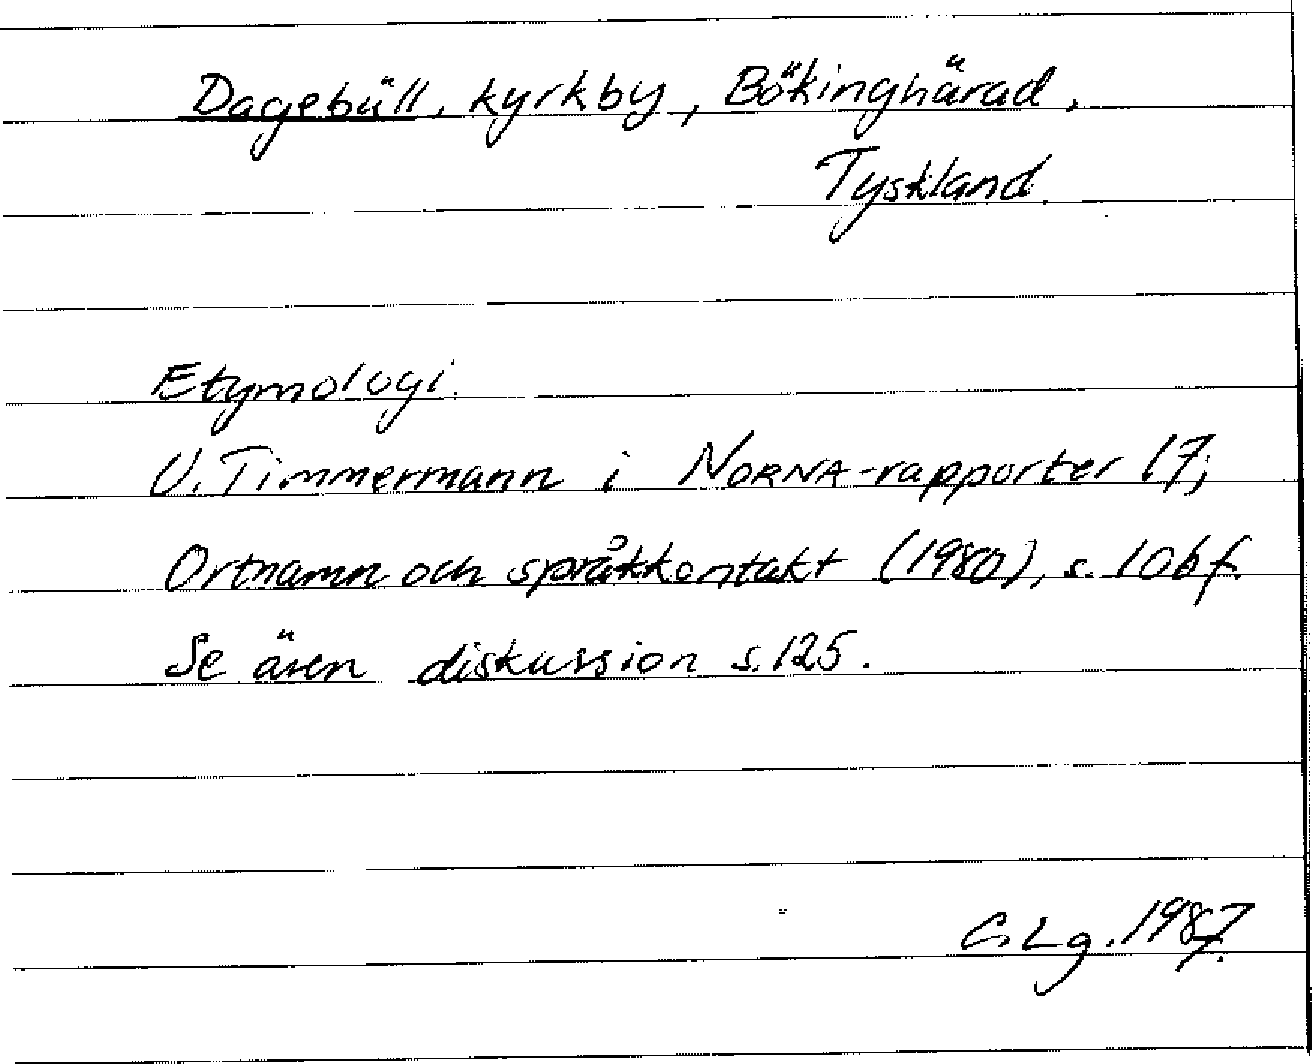 Dagebüll, kyrkby, Bökinghärad,
Tyskland.
Etymologi.
U. Timmermann i NORNA-rapporter 17;
Ortnamn och språkkontakt (1980), s. 106 f.
Se även diskussion s. 125.
C. Lg. 1987.